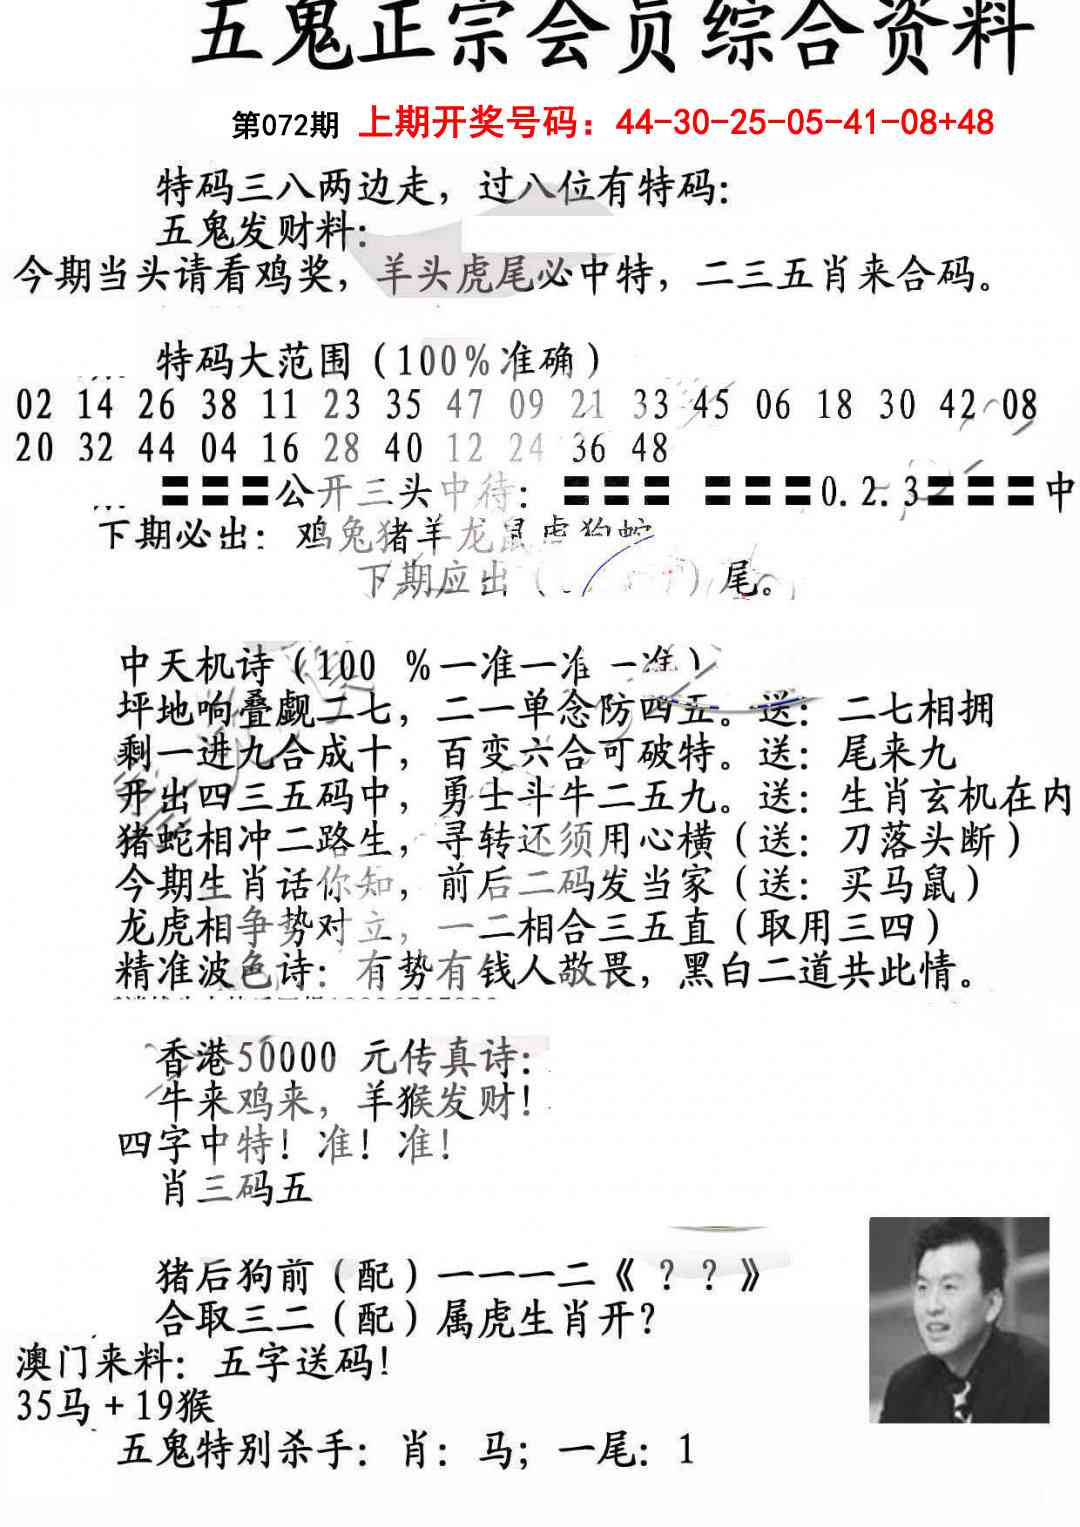 五鬼正宗会员综合资料
第072期 上期开奖号码：44-30-25-05-41-08+48
特码三八两边走，过八位有特码：
五鬼发财料：
今期当头请看鸡奖，羊头虎尾必中特，二三五肖来合码。
特码大范围（100%准确）
02 14 26 38 11 23 35 47 09 21 33 45 06 18 30 42 08
20 32 44 04 16 28 40 12 24 36 48
〓〓〓公开三头中待：〓〓〓 〓〓〓0.2.3〓〓〓中
下期必出：鸡兔猪羊龙鼠虎狗蛇
下期应出（ ）尾。
中天机诗（100 %一准一准一准）
坪地响叠觑二七，二一单念防四五。送：二七相拥
剩一进九合成十，百变六合可破特。送：尾来九
开出四三五码中，勇士斗牛二五九。送：生肖玄机在内
猪蛇相冲二路生，寻转还须用心横（送：刀落头断）
今期生肖话你知，前后二码发当家（送：买马鼠）
龙虎相争势对立，一二相合三五直（取用三四）
精准波色诗：有势有钱人敬畏，黑白二道共此情。
香港50000 元传真诗：
牛来鸡来，羊猴发财！
四字中特！准！准！
肖三码五
猪后狗前（配）一一一二《？？》
合取三二（配）属虎生肖开？
澳门来料：五字送码！
35马+19猴
五鬼特别杀手：肖：马；一尾：1